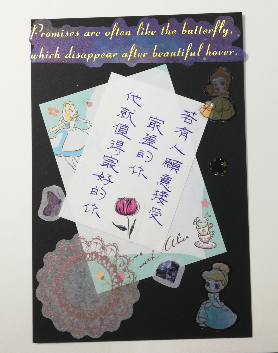 Promises are often like the butterfly,
which disappear after beautiful hover.
若有人願意接受
最差的你
他就值得最好的你
Alice